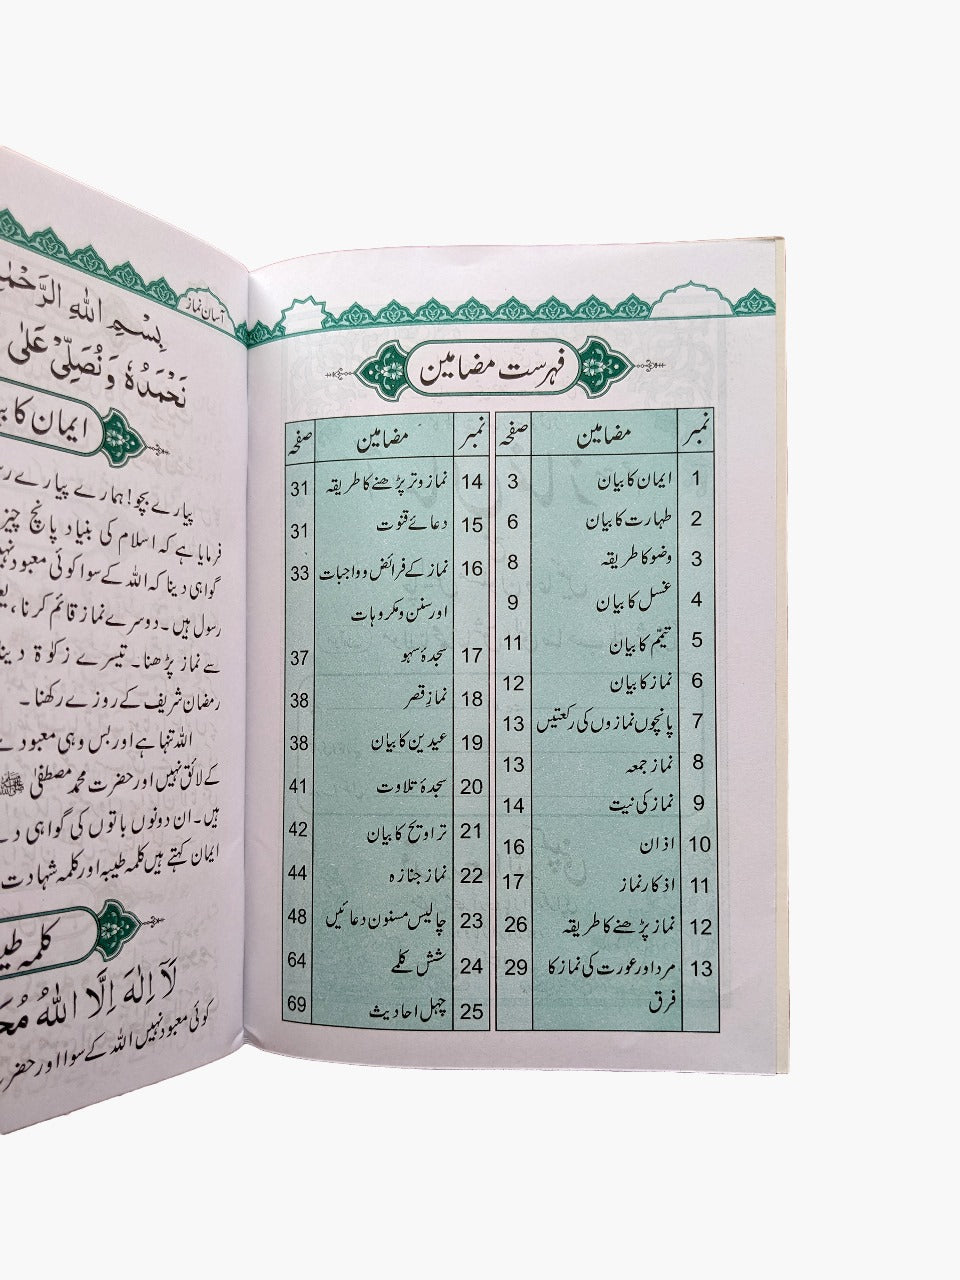 فہرست مضامین
نمبر مضامین صفحہ
1 ایمان کا بیان 3
2 طہارت کا بیان 6
3 وضو کا طریقہ 8
4 غسل کا بیان 9
5 تیمّم کا بیان 11
6 نماز کا بیان 12
7 پانچوں نمازوں کی رکعتیں 13
8 نماز جمعہ 13
9 نماز کی نیت 14
10 اذان 16
11 اذکار نماز 17
12 نماز پڑھنے کا طریقہ 26
13 مرد اور عورت کی نماز کا 29
فرق
نمبر مضامین صفحہ
14 نماز وتر پڑھنے کا طریقہ 31
15 دعائے قنوت 31
16 نماز کے فرائض و واجبات 33
اور سنن و مکروہات
17 سجدۂ سہو 37
18 نمازِ قصر 38
19 عیدین کا بیان 38
20 سجدۂ تلاوت 41
21 تراویح کا بیان 42
22 نماز جنازہ 44
23 چالیس مسنون دعائیں 48
24 شش کلمے 64
25 چہل احادیث 69
آسان نماز
بِسْمِ اللهِ الرَّحْمٰنِ
نَحْمَدُهٗ وَ نُصَلِّیْ عَلٰی
ایمان کا
پیارے بچو! ہمارے پیارے
فرمایا ہے کہ اسلام کی بنیاد پانچ
گواہی دینا کہ اللہ کے سوا کوئی معبود
رسول ہیں۔ دوسرے نماز قائم کرنا،
سے نماز پڑھنا۔ تیسرے زکوۃ دینا
رمضان شریف کے روزے رکھنا۔
اللہ تنہا ہے اور بس وہی معبود
کے لائق نہیں اور حضرت محمد مصطفیٰ ﷺ
ہیں۔ ان دونوں باتوں کی گواہی
ایمان کہتے ہیں کلمہ طیبہ اور کلمہ شہادت
کلمہ
لَآ اِلٰهَ اِلَّا اللهُ
کوئی معبود نہیں اللہ کے سوا اور